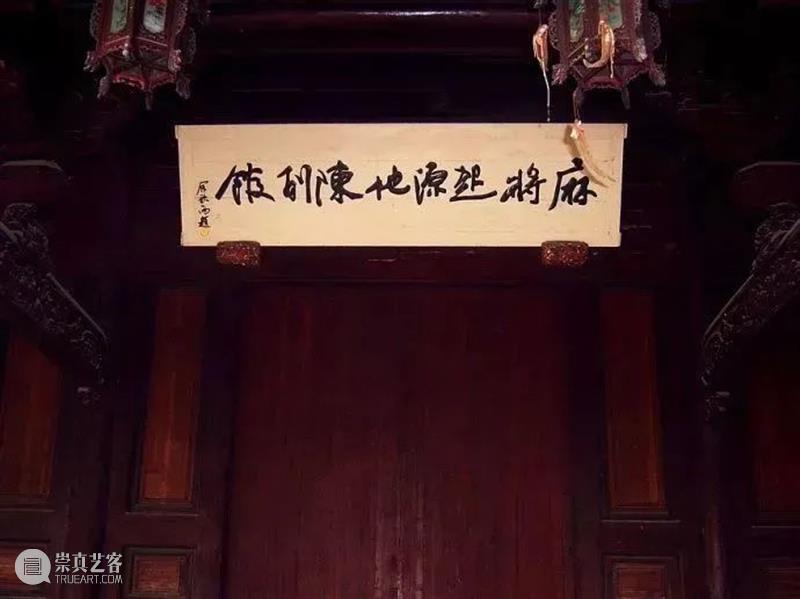 麻將起源地陳列館
崇真艺客
TRUEART.COM